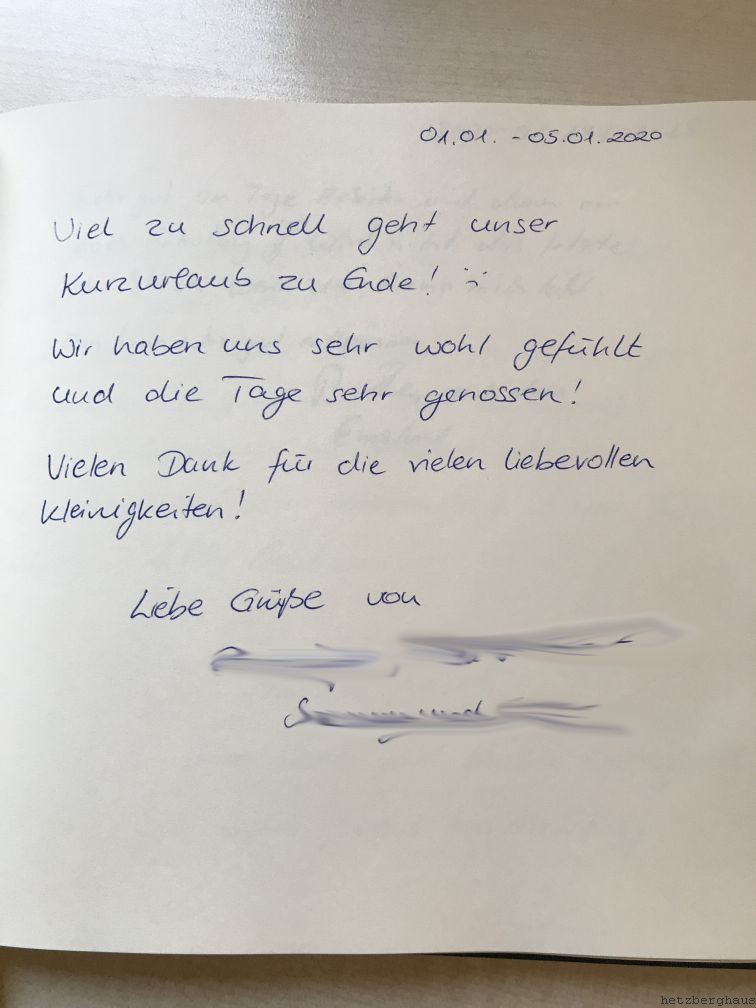 01.01. - 05.01.2020
Viel zu schnell geht unser
Kurzurlaub zu Ende! :-(
Wir haben uns sehr wohl gefühlt
und die Tage sehr genossen!
Vielen Dank für die vielen liebevollen
Kleinigkeiten!
Liebe Grüße von
hetzberghaus